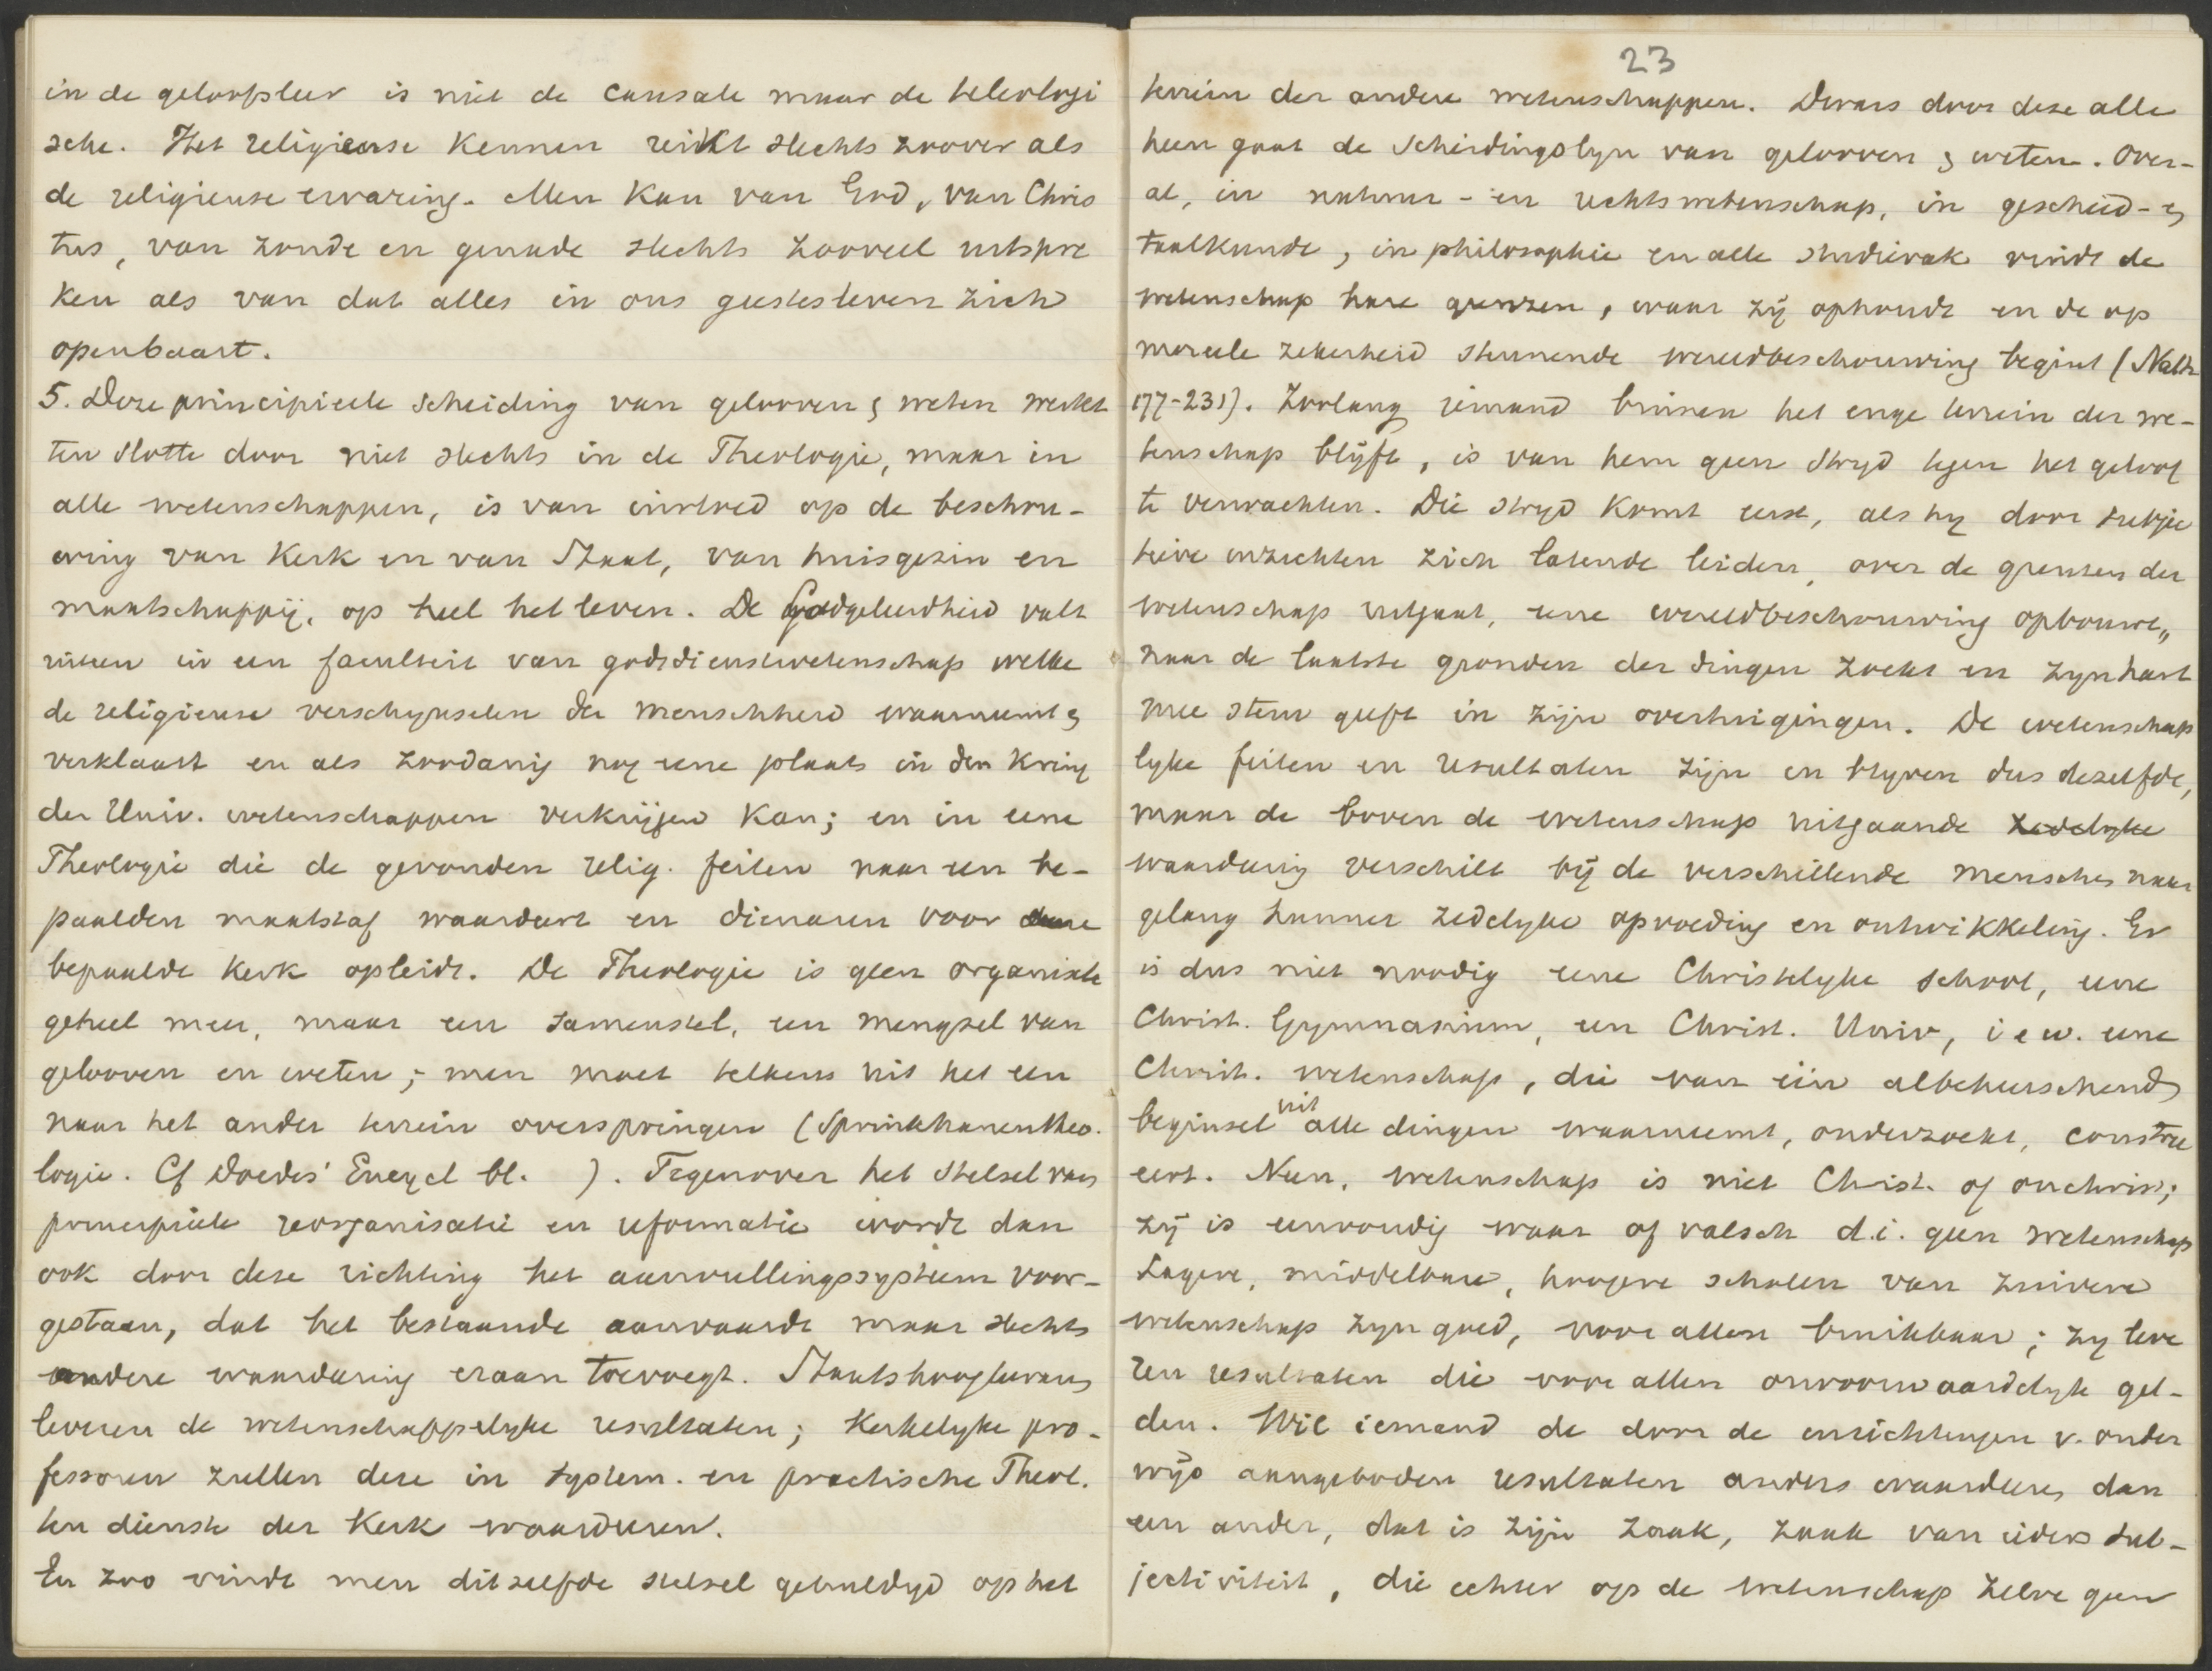 in de geloofsleer is niet de causale maar de teleologi
sche. Het religieuse kennen reikt slechts zoover als
de religieuse ervaring. Men kan van God, van Chris
tus, van zonde en genade slechts zooveel uitspre
ken als van dat alles in ons geestesleven zich
openbaart.
5. Deze principieele scheiding van gelooven & weten werkt
ten slotte door niet slechts in de Theologie, maar in
alle wetenschappen, is van invloed op de beschou-
wing van Kerk en van Staat, van huisgezin en
maatschappij, op heel het leven. De Godgeleerdheid valt
uiteen in een faculteit van godsdienstwetenschap welke
de religieuse verschynselen der menschheid waarneemt &
verklaart en als zoodanig nog eene plaats in den kring
der Univ. wetenschappen verkrijgen kan; en in eene
Theologie die de gevonden relig. feiten naar een be-
paalden maatstaf waardeert en dienaren voor eene
bepaalde kerk opleidt. De Theologie is geen organisch
geheel meer, maar een samenstel, een mengsel van
gelooven en weten; men moet telkens uit het een
naar het ander terrein overspringen (Sprinkhanentheo-
logie. Cf Doedes' Encycl bl. ). Tegenover het stelsel van
principieele reorganisatie en reformatie wordt dan
ook door deze richting het aanvullingssysteem voor-
gestaan, dat het bestaande aanvaardt maar slechts
andere waardering eraan toevoegt. Staatshoogleraren
leveren de wetenschappelyke resultaten; Kerkelyke pro-
fessoren zullen deze in system. en practische Theol.
ten dienste der Kerk waardeeren.
En zoo vindt men ditzelfde stelsel gehuldigd op het
23
terrein der andere wetenschappen. Dwars door deze alle
heen gaat de scheidingslyn van gelooven & weten. Over-
al, in natuur- en rechtswetenschap, in geschied- &
taalkunde, in philosophie en alle studievak vindt de
wetenschap hare grenzen, waar zij ophoudt en de op
moreele zekerheid steunende wereldbeschouwing begint (Kath
177-231). Zoolang iemand binnen het enge terrein der we-
tenschap blijft, is van hem geen stryd tegen het geloof
te verwachten. Die stryd komt eerst, als hy door subjec
tieve inzichten zich latende leiden, over de grenzen der
wetenschap uitgaat, eene wereldbeschouwing opbouwt,
naar de laatste gronden der dingen zoekt en zyn hart
mee stem geeft in zijn overtuigingen. De wetenschap
lyke feiten en resultaten zijn en blyven dus dezelfde,
maar de boven de wetenschap uitgaande zedelyke
waardering verschilt bij de verschillende menschen naar
gelang hunner zedelyke opvoeding en ontwikkeling. Er
is dus niet noodig eene Christelyke school, eene
Christ. Gymnasium, een Christ. Univ, i e w. eene
Christ. wetenschap, die van één albeheerschend
beginsel uit alle dingen waarneemt, onderzoekt, constru
eert. Neen, wetenschap is niet Christ. of onchrist;
zij is eenvoudig waar of valsch d.i. geen wetenschap
Lagere, middelbare, hoogere scholen van zuivere
wetenschap zyn goed, voor allen bruikbaar; zy leve
ren resultaten die voor allen onvoorwaardelyk gel-
den. Wil iemand de door de inrichtingen v. onder
wijs aangeboden resultaten anders waardeeren dan
een ander, dat is zijn zaak, zaak van ieders sub-
jectiviteit, die echter op de wetenschap zelve geen